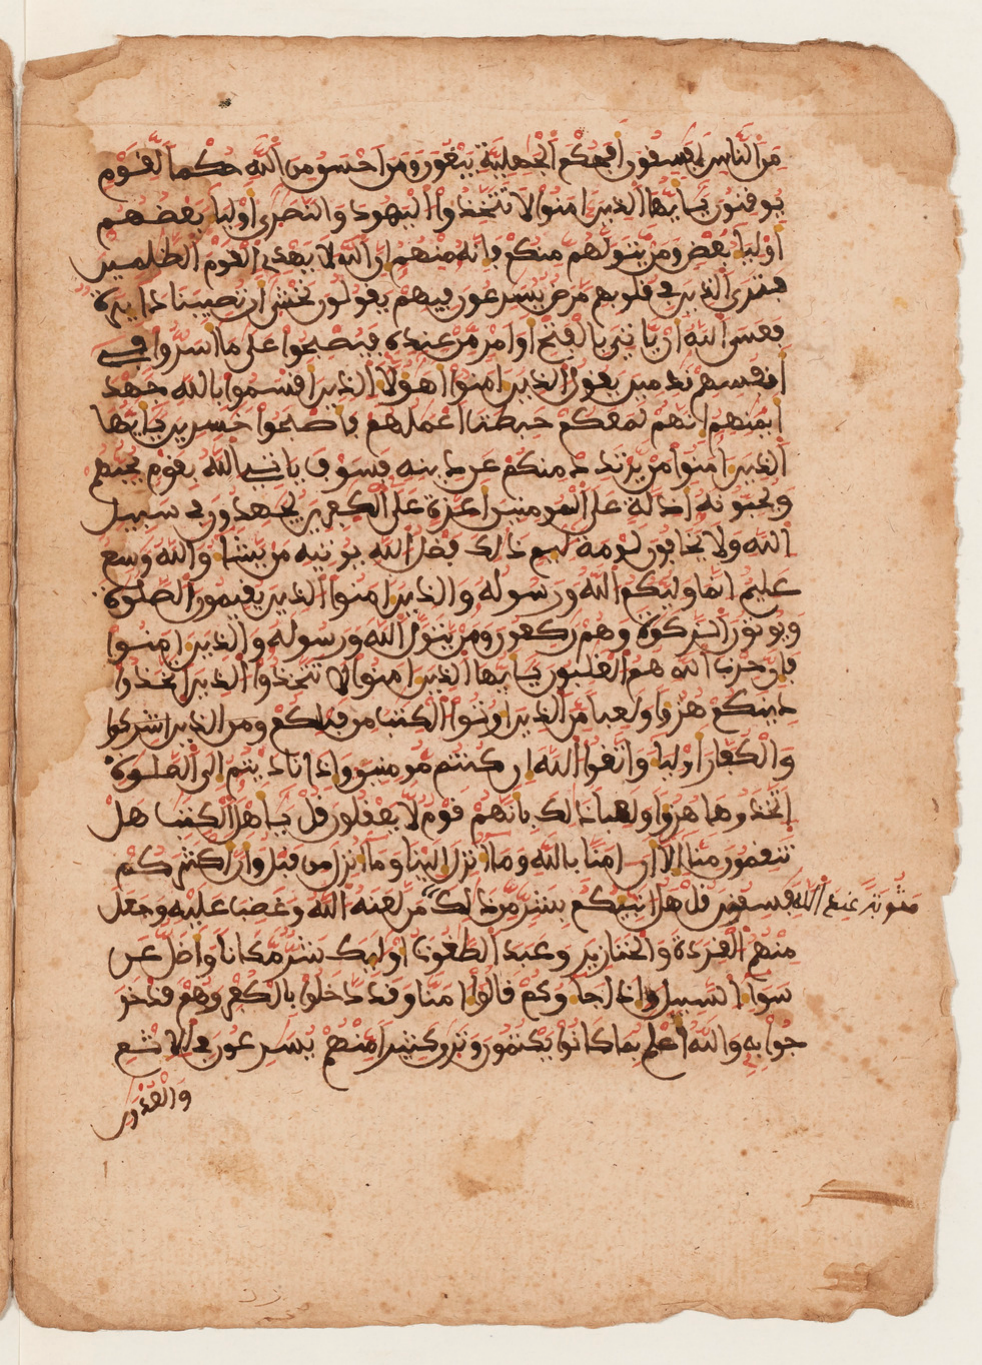 من الناس لفسقون افحكم الجهلية يبغون ومن احسن من الله حكما لقوم
يوقنون يايها الذين امنوا لا تتخذوا اليهود والنصرى اوليا بعضهم
اوليا بعض ومن يتولهم منكم فانه منهم ان الله لا يهدي القوم الظلمين
فترى الذين في قلوبهم مرض يسرعون فيهم يقولون نخشى ان تصيبنا دايرة
فعسى الله ان ياتي بالفتح او امر من عنده فيصبحوا على ما اسروا في
انفسهم ندمين يقول الذين امنوا اهؤلا الذين اقسموا بالله جهد
ايمنهم انهم لمعكم حبطت اعملهم فاصبحوا خسرين يايها
الذين امنوا من يرتدد منكم عن دينه فسوف ياتي الله بقوم يحبهم
ويحبونه اذلة على المومنين اعزة على الكفرين يجهدون في سبيل
الله ولا يخافون لومة ليم ذالك فضل الله يوتيه من يشا والله وسع
عليم انما وليكم الله ورسوله والذين امنوا الذين يقيمون الصلوة
ويوتون الزكوة وهم ركعون ومن يتول الله ورسوله والذين امنوا
فان حزب الله هم الغلبون يايها الذين امنوا لا تتخذوا الذين اتخذوا
دينكم هزوا ولعبا من الذين اوتوا الكتب من قبلكم ومن الذين اشركوا
والكفار اوليا واتقوا الله ان كنتم مومنين واذا ناديتم الى الصلوة
اتخذوها هزوا ولعبا ذالك بانهم قوم لا يعقلون قل ياهل الكتب هل
تنقمون منا الا ان امنا بالله وما انزل الينا وما انزل من قبل وان اكثركم
فسقون قل هل انبيكم بشر من ذالك من لعنه الله وغضب عليه وجعل
مثوبة عند الله
منهم القردة والخنازير وعبد الطغوت اوليك شر مكانا واضل عن
سوا السبيل واذا جاوكم قالوا امنا وقد دخلوا بالكفر وهم قد خر
جوا به والله اعلم بما كانوا يكتمون وترى كثيرا منهم يسرعون في الاثم
والعدون